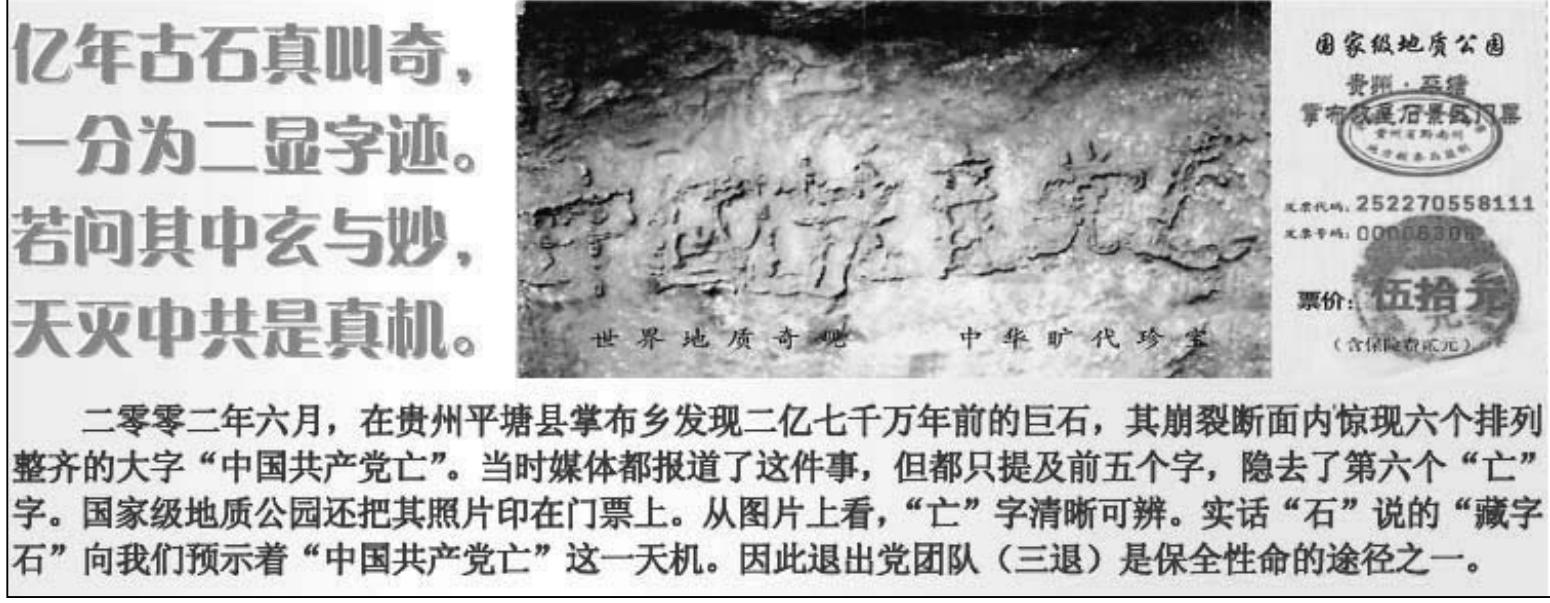 亿年古石真叫奇，
一分为二显字迹。
若问其中玄与妙，
天灭中共是真机。
中国共产党亡
世界地质奇观 中华旷代珍宝
国家级地质公园
贵州·平塘
掌布 石景区门票
贵州省黔南州
发票代码：252270558111
发票号码：
票价：伍拾元
（含保险费贰元）
二零零二年六月，在贵州平塘县掌布乡发现二亿七千万年前的巨石，其崩裂断面内惊现六个排列
整齐的大字“中国共产党亡”。当时媒体都报道了这件事，但都只提及前五个字，隐去了第六个“亡”
字。国家级地质公园还把其照片印在门票上。从图片上看，“亡”字清晰可辨。实话“石”说的“藏字
石”向我们预示着“中国共产党亡”这一天机。因此退出党团队（三退）是保全性命的途径之一。